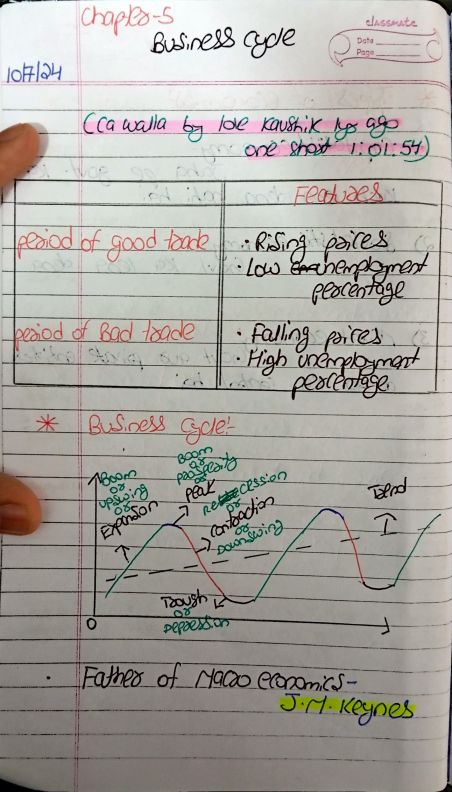 Chapter-5
classmate
Date
Page
Business cycle
10/7/24
(ca walla by love kaushik 1yr ago
one shot 1:01:54)
Features
period of good trade
• Rising prices
• Low unemployment
percentage
period of Bad trade
• Falling prices
• High unemployment
percentage
* Business Cycle:-
Boom
or
upswing
or
Expansion
Boom
or
prosperity
or
peak
Recession
or
contraction
or
Downswing
Trend
Trough
or
Depression
0
• Father of Macro economics-
J.M. Keynes